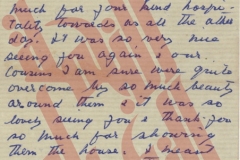 much for your kind hospi-
tality towards us all the other
day. It was so very nice
seeing you again & our
Cousins I am sure were quite
overcome by so much beauty
around them & it was so
lovely seeing you & thank you
so much for showing
them the house. I meant